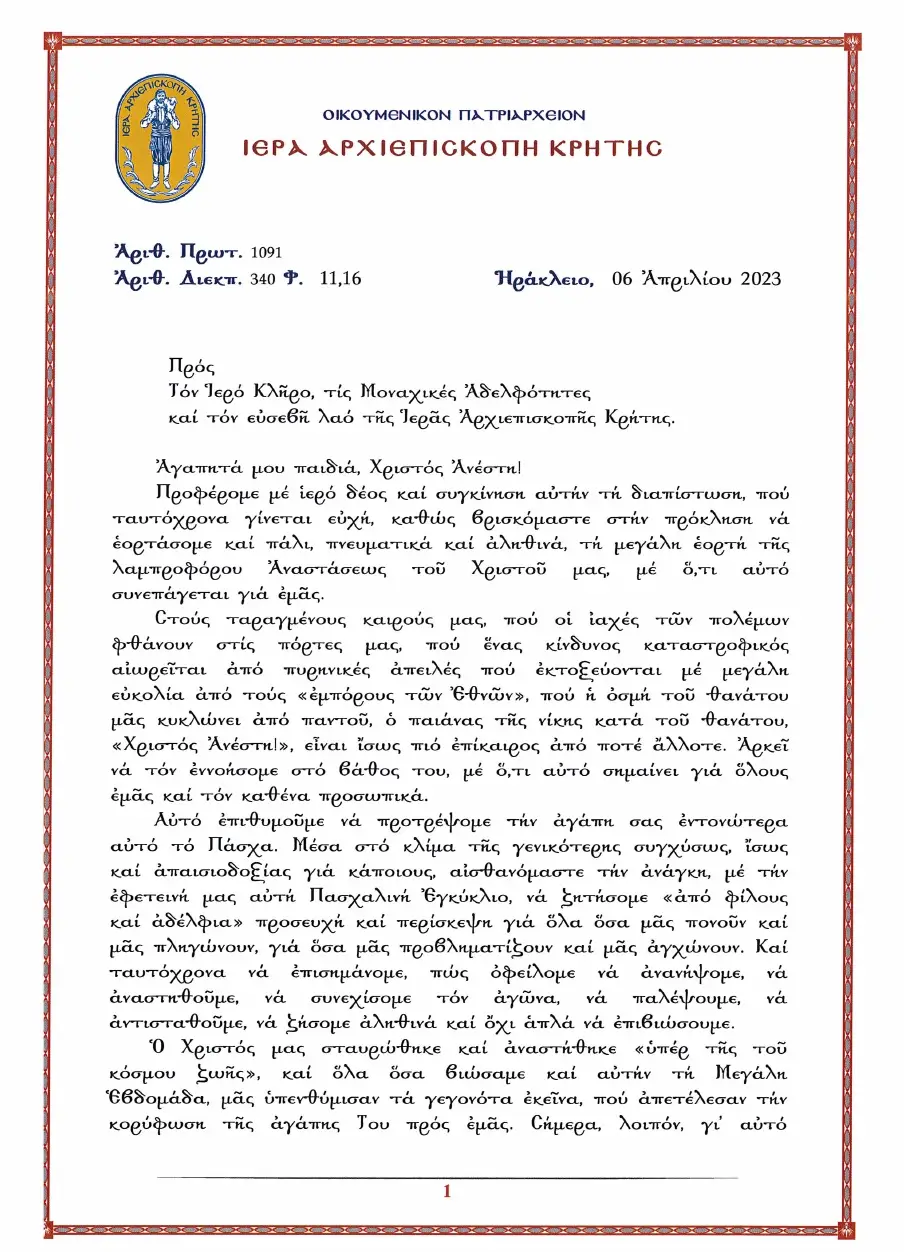 ΙΕΡΑ ΑΡΧΙΕΠΙСΚΟΠΗ ΚΡΗΤΗС
ΟΙΚΟΥΜΕΝΙΚΟΝ ΠΑΤΡΙΑΡΧΕΙΟΝ
ΙΕΡΑ ΑΡΧΙΕΠΙСΚΟΠΗ ΚΡΗΤΗС
Ἀριθ. Πρωτ. 1091
Ἀριθ. Διεκπ. 340 Φ. 11,16 Ἡράκλειο, 06 Ἀπριλίου 2023
Πρός
Τόν Ἱερό Κλῆρο, τίς Μοναχικές Ἀδελφότητες
καί τόν εὐσεβῆ λαό τῆς Ἱερᾶς Ἀρχιεπισκοπῆς Κρήτης.
Ἀγαπητά μου παιδιά, Χριστός Ἀνέστη!
Προφέρομε μέ ἱερό δέος καί συγκίνηση αὐτήν τή διαπίστωση, πού
ταυτόχρονα γίνεται εὐχή, καθώς βρισκόμαστε στήν πρόκληση νά
ἑορτάσομε καί πάλι, πνευματικά καί ἀληθινά, τή μεγάλη ἑορτή τῆς
λαμπροφόρου Ἀναστάσεως τοῦ Χριστοῦ μας, μέ ὅ,τι αὐτό
συνεπάγεται γιά ἐμᾶς.
Στούς ταραγμένους καιρούς μας, πού οἱ ἰαχές τῶν πολέμων
φθάνουν στίς πόρτες μας, πού ἕνας κίνδυνος καταστροφικός
αἰωρεῖται ἀπό πυρηνικές ἀπειλές πού ἐκτοξεύονται μέ μεγάλη
εὐκολία ἀπό τούς «ἐμπόρους τῶν Ἐθνῶν», πού ἡ ὀσμή τοῦ θανάτου
μᾶς κυκλώνει ἀπό παντοῦ, ὁ παιάνας τῆς νίκης κατά τοῦ θανάτου,
«Χριστός Ἀνέστη!», εἶναι ἴσως πιό ἐπίκαιρος ἀπό ποτέ ἄλλοτε. Ἀρκεῖ
νά τόν ἐννοήσομε στό βάθος του, μέ ὅ,τι αὐτό σημαίνει γιά ὅλους
ἐμᾶς καί τόν καθένα προσωπικά.
Αὐτό ἐπιθυμοῦμε νά προτρέψομε τήν ἀγάπη σας ἐντονώτερα
αὐτό τό Πάσχα. Μέσα στό κλίμα τῆς γενικότερης συγχύσως, ἴσως
καί ἀπαισιοδοξίας γιά κάποιους, αἰσθανόμαστε τήν ἀνάγκη, μέ τήν
ἐφετεινή μας αὐτή Πασχαλινή Ἐγκύκλιο, νά ζητήσομε «ἀπό φίλους
καί ἀδέλφια» προσευχή καί περίσκεψη γιά ὅλα ὅσα μᾶς πονοῦν καί
μᾶς πληγώνουν, γιά ὅσα μᾶς προβληματίζουν καί μᾶς ἀγχώνουν. Καί
ταυτόχρονα νά ἐπισημάνομε, πώς ὀφείλομε νά ἀνανήψομε, νά
ἀναστηθοῦμε, νά συνεχίσομε τόν ἀγῶνα, νά παλέψουμε, νά
ἀντισταθοῦμε, νά ζήσομε ἀληθινά καί ὄχι ἁπλά νά ἐπιβιώσουμε.
Ὁ Χριστός μας σταυρώθηκε καί ἀναστήθηκε «ὑπέρ τῆς τοῦ
κόσμου ζωῆς», καί ὅλα ὅσα βιώσαμε καί αὐτήν τή Μεγάλη
Ἑβδομάδα, μᾶς ὑπενθύμισαν τά γεγονότα ἐκεῖνα, πού ἀπετέλεσαν τήν
κορύφωση τῆς ἀγάπης Του πρός ἐμᾶς. Σήμερα, λοιπόν, γι᾽ αὐτό
1